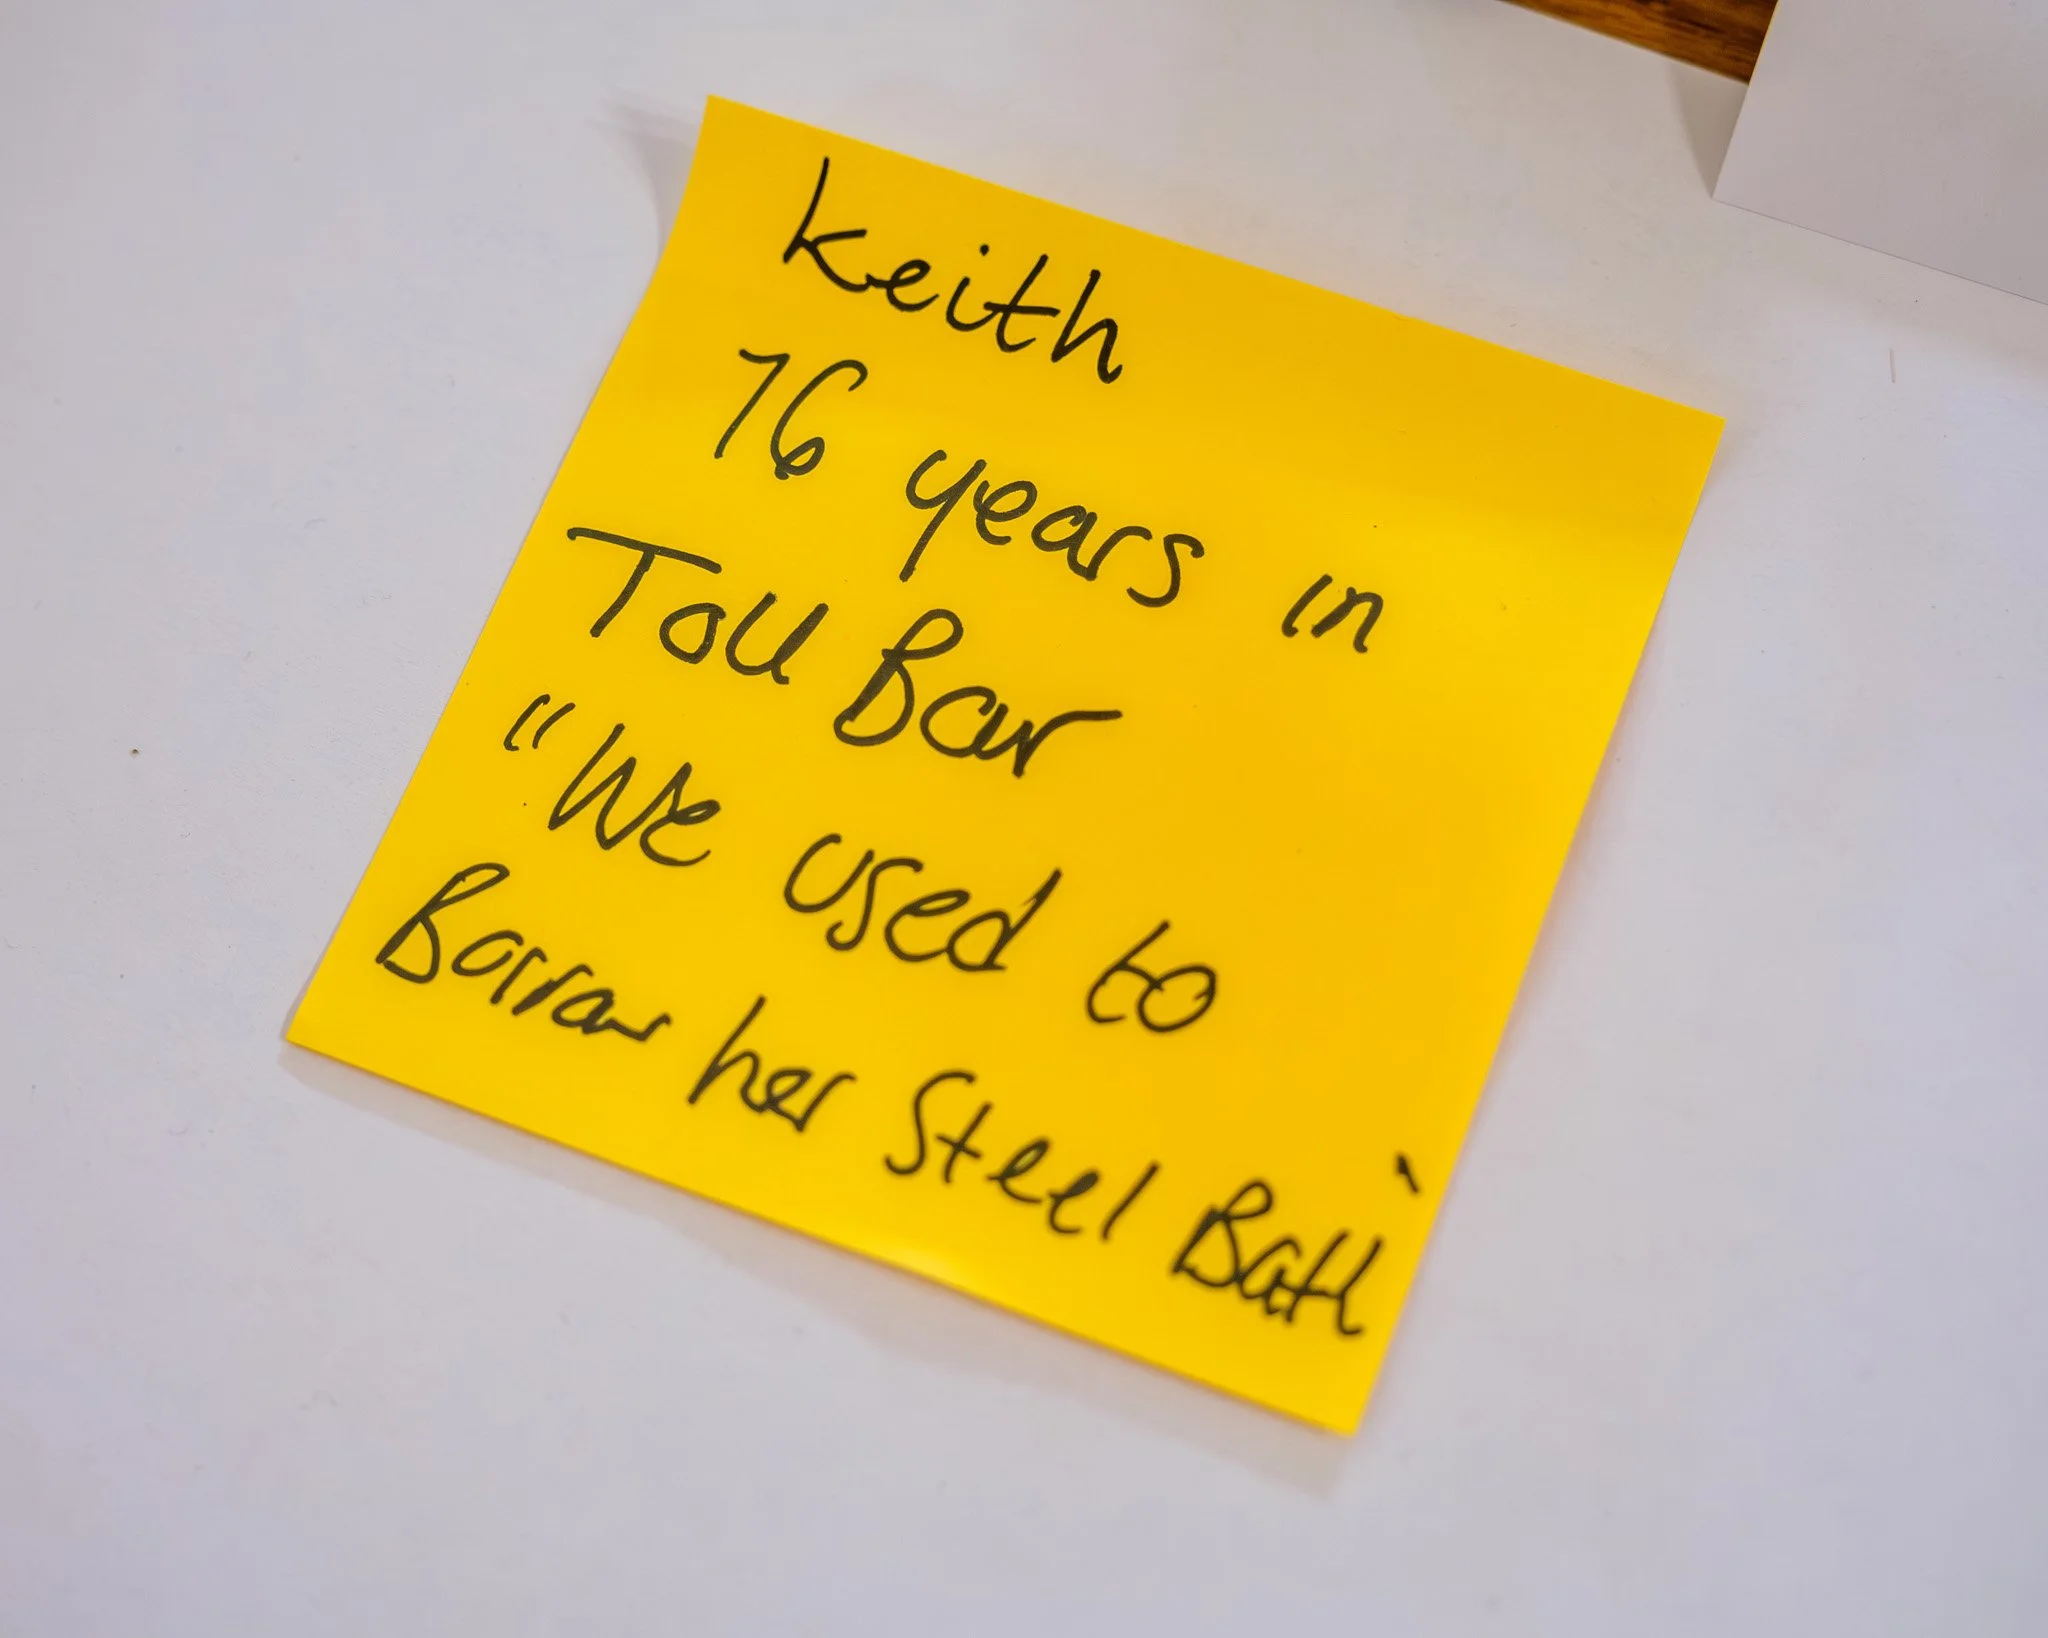 Keith
76 years in
Toll Bar
"We used to
Borrow her Steel Bath'